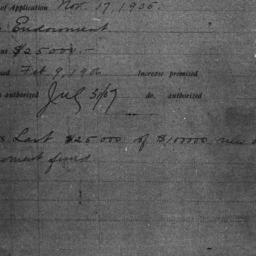 of Application Nov. 17, 1905.
Endowment "
$25000.-
Feb 9, 1906 Increase promised
authorized July 31/07 do. authorized
Last $25000 of $100000 new
fund